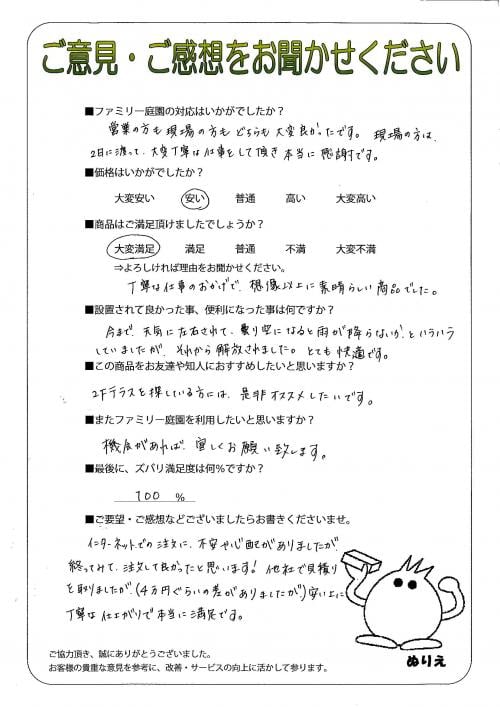 ご意見・ご感想をお聞かせください
■ファミリー庭園の対応はいかがでしたか？
営業の方も現場の方もどちらも大変良かったです。現場の方は、
2日に渡って、大変丁寧な仕事をして頂き本当に感謝です。
■価格はいかがでしたか？
大変安い 安い 普通 高い 大変高い
■商品はご満足頂けましたでしょうか？
大変満足 満足 普通 不満 大変不満
⇒よろしければ理由をお聞かせください。
丁寧な仕事のおかげで、想像以上に素晴らしい商品でした。
■設置されて良かった事、便利になった事は何ですか？
今まで、天気に左右されて、曇り空になると雨が降らないか、とイライラ
していましたが、それから解放されました。とても快適です。
■この商品をお友達や知人におすすめしたいと思いますか？
2Fテラスを探している方には、是非オススメしたいです。
■またファミリー庭園を利用したいと思いますか？
機会があれば、宜しくお願い致します。
■最後に、ズバリ満足度は何％ですか？
100 %
■ご要望・ご感想などございましたらお書きくださいませ。
インターネットでの注文に、不安や心配がありましたが
終ってみて、注文して良かったと思います！他社で見積り
を取りましたが、(4万円ぐらいの差がありましたが)安い上に
丁寧な仕上がりで本当に満足です。
ぬりえ
ご協力頂き、誠にありがとうございました。
お客様の貴重な意見を参考に、改善・サービスの向上に活かして参ります。